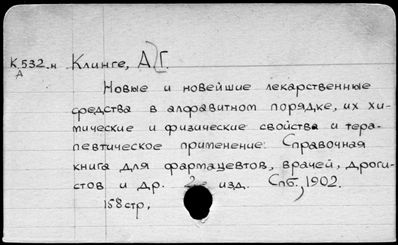 К.532.н Клинге, А.Г.
А
Новые и новейшие лекарственные
средства в алфавитном порядке, их хи-
мические и физические свойства и тера-
певтическое применение: Справочная
книга для фармацевтов, врачей, дроги-
стов и др. 2-е изд. Спб., 1902.
158 стр.